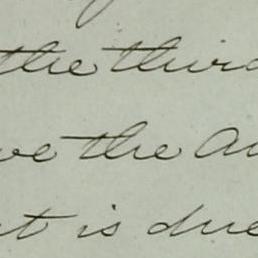 the third
ve the Au
t is due